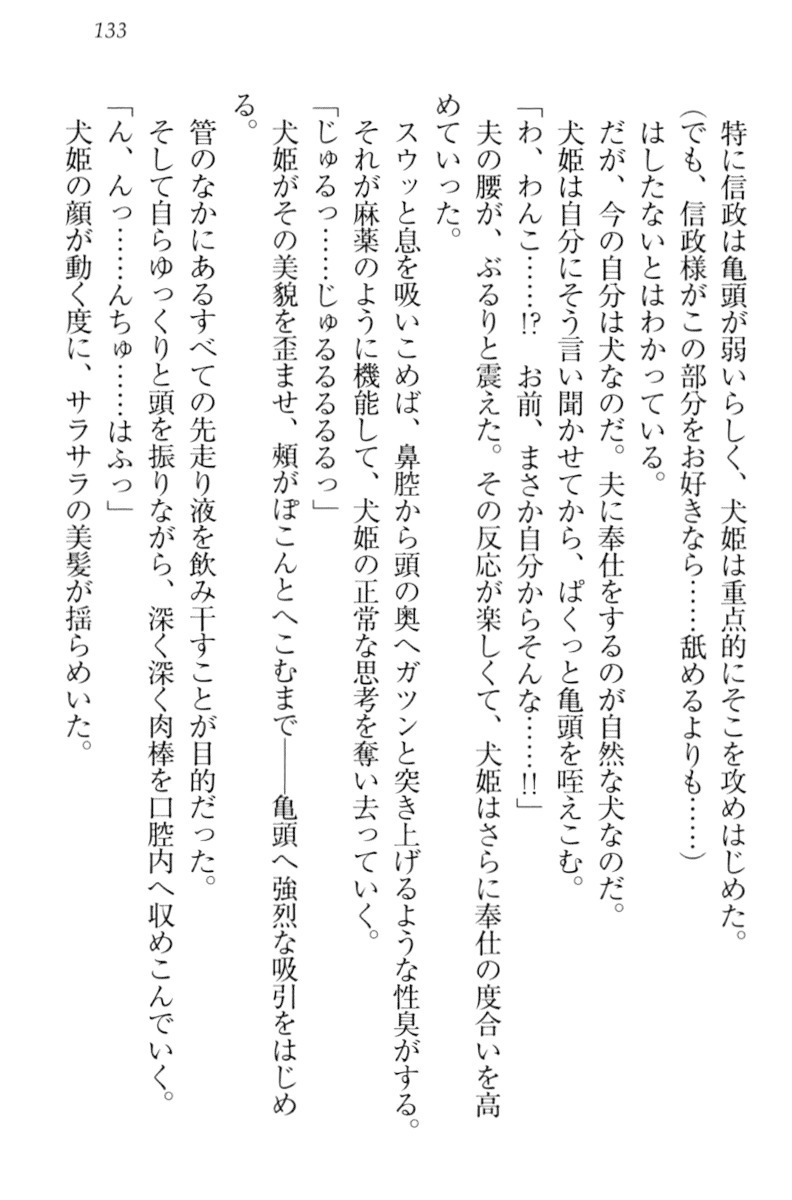 133
特に信政は亀頭が弱いらしく、犬姫は重点的にそこを攻めはじめた。
(でも、信政様がこの部分をお好きなら……舐めるよりも……)
はしたないとはわかっている。
だが、今の自分は犬なのだ。夫に奉仕をするのが自然な犬なのだ。
犬姫は自分にそう言い聞かせてから、ぱくっと亀頭を咥えこむ。
「わ、わんこ……!?　お前、まさか自分からそんな……!!」
夫の腰が、ぶるりと震えた。その反応が楽しくて、犬姫はさらに奉仕の度合いを高
めていった。
スウッと息を吸いこめば、鼻腔から頭の奥へガツンと突き上げるような性臭がする。
それが麻薬のように機能して、犬姫の正常な思考を奪い去っていく。
「じゅるっ……じゅるるるるるっ」
犬姫がその美貌を歪ませ、頰がぽこんとへこむまで――亀頭へ強烈な吸引をはじめ
る。
管のなかにあるすべての先走り液を飲み干すことが目的だった。
そして自らゆっくりと頭を振りながら、深く深く肉棒を口腔内へ収めこんでいく。
「ん、んっ……んちゅ……はふっ」
犬姫の顔が動く度に、サラサラの美髪が揺らめいた。